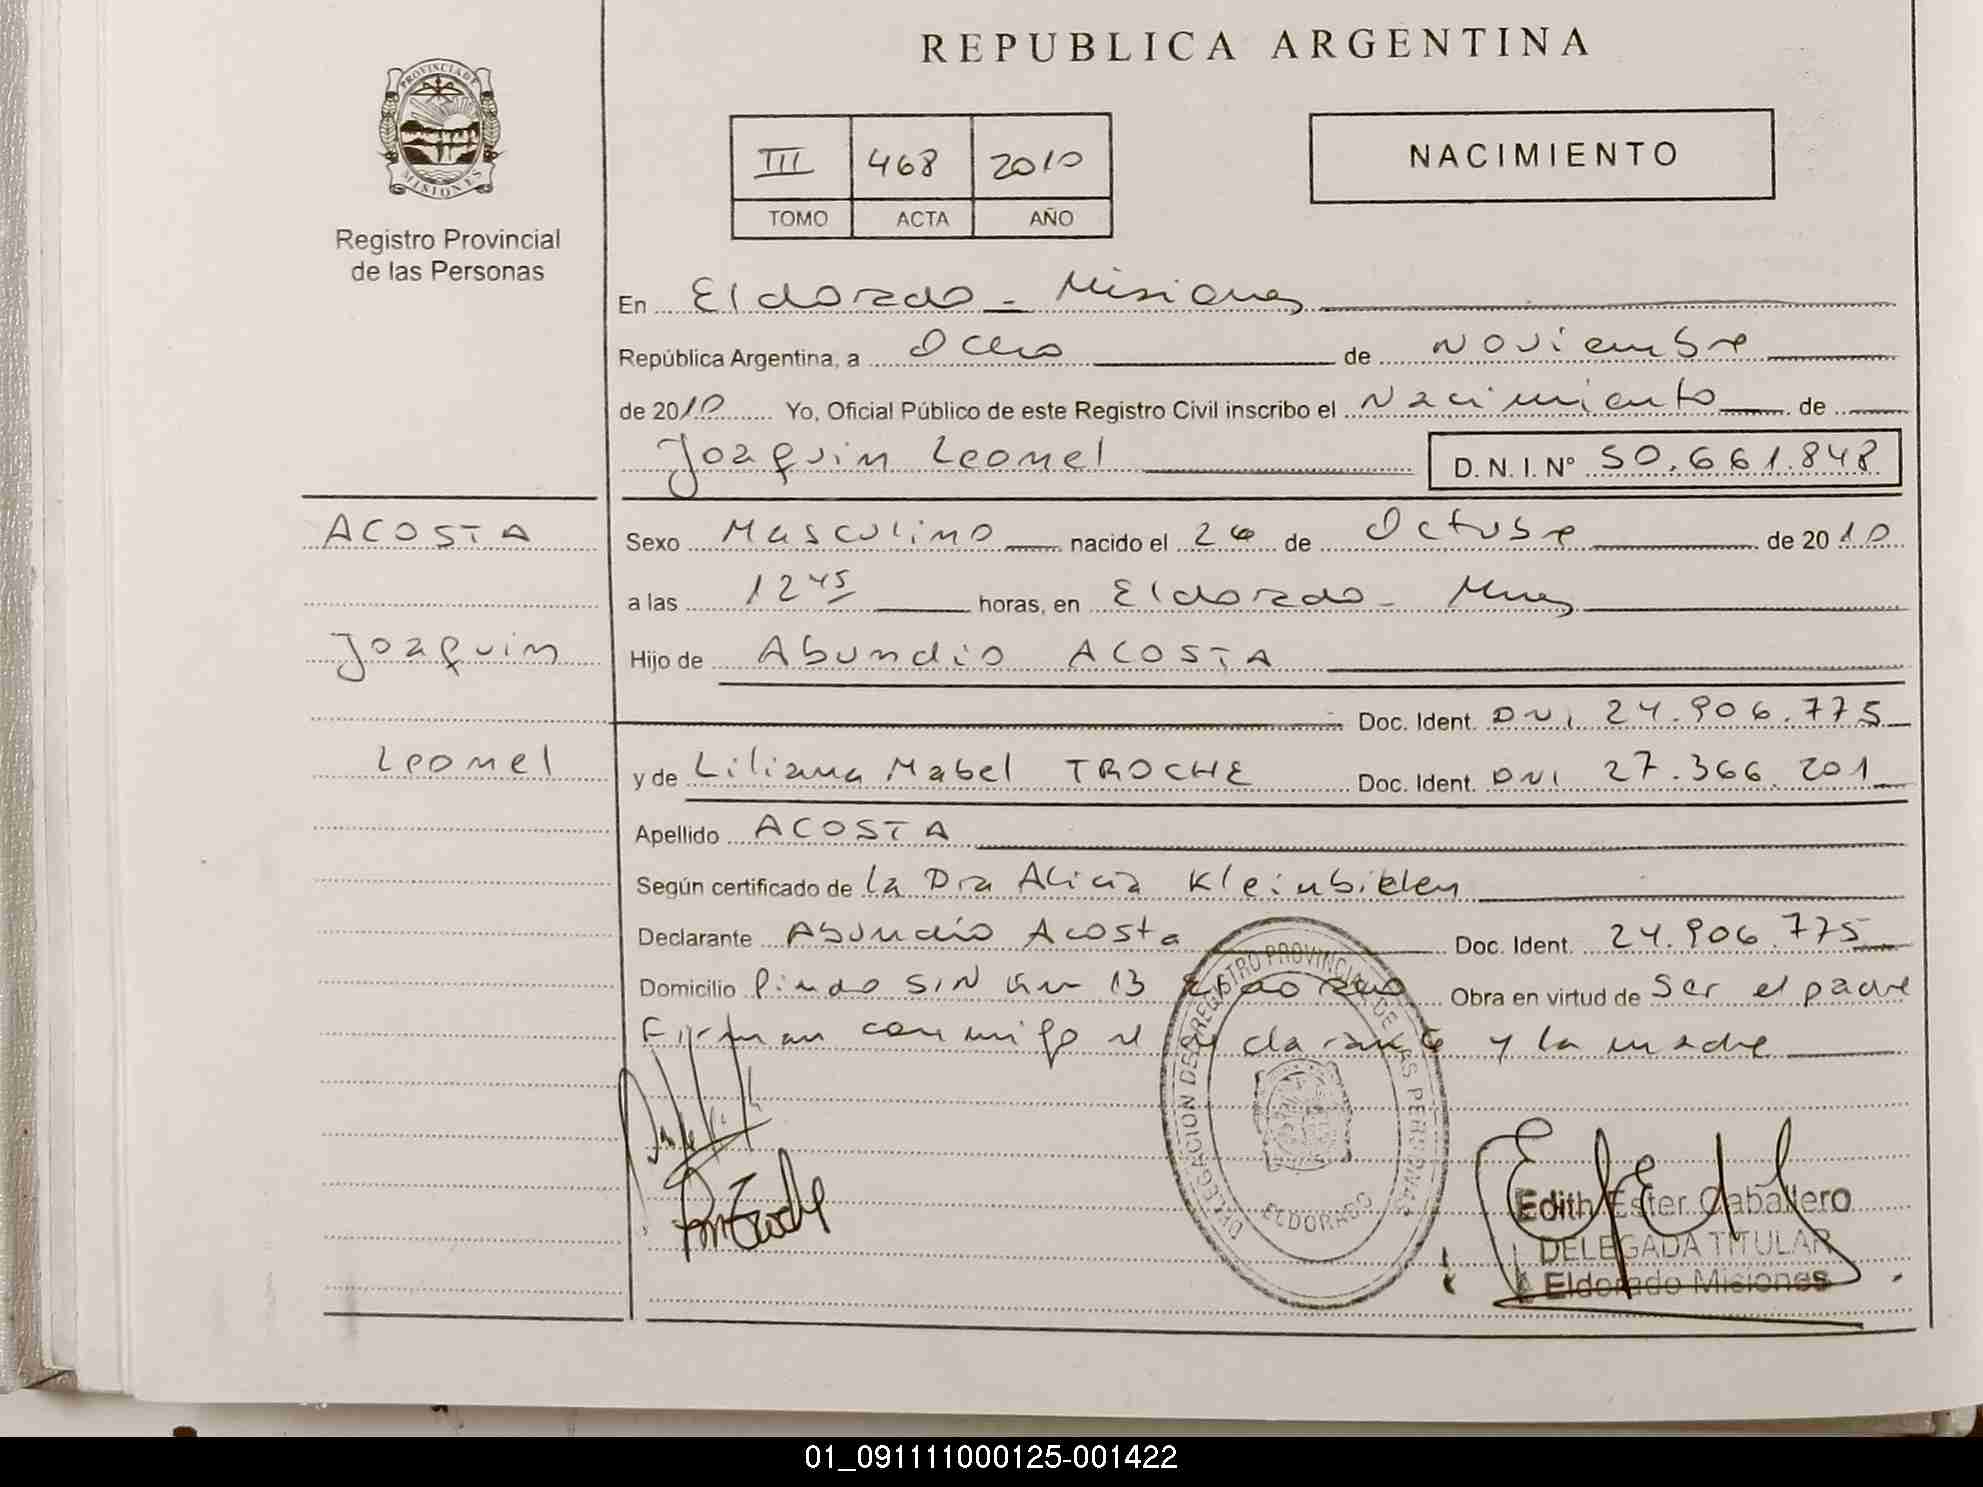 REPUBLICA ARGENTINA
PROVINCIA DE
MISIONES
Registro Provincial
de las Personas
III 468 2010
TOMO ACTA AÑO
NACIMIENTO
En Eldorado - Misiones
República Argentina, a Ocho de Noviembre
de 2010 Yo, Oficial Público de este Registro Civil inscribo el Nacimiento de
Joaquin Leonel D.N.I. Nº 50.661.848
ACOSTA
Joaquin
Leonel
Sexo Masculino nacido el 26 de Octubre de 2010
a las 12 45 horas, en Eldorado - Mnes
Hijo de Abundio ACOSTA
Doc. Ident. DNI 24.906.775
y de Liliana Mabel TROCHE Doc. Ident. DNI 27.366.201
Apellido ACOSTA
Según certificado de la Dra Alicia
Declarante Abundio Acosta Doc. Ident. 24.906.775
Domicilio Pindo S/N km 13 Eldorado Obra en virtud de Ser el padre
Firman conmigo el declarante y la madre
DELEGACION DEL REGISTRO PROVINCIAL DE LAS PERSONAS
ELDORADO
Edith Ester Caballero
DELEGADA TITULAR
Eldorado Misiones
01_091111000125-001422